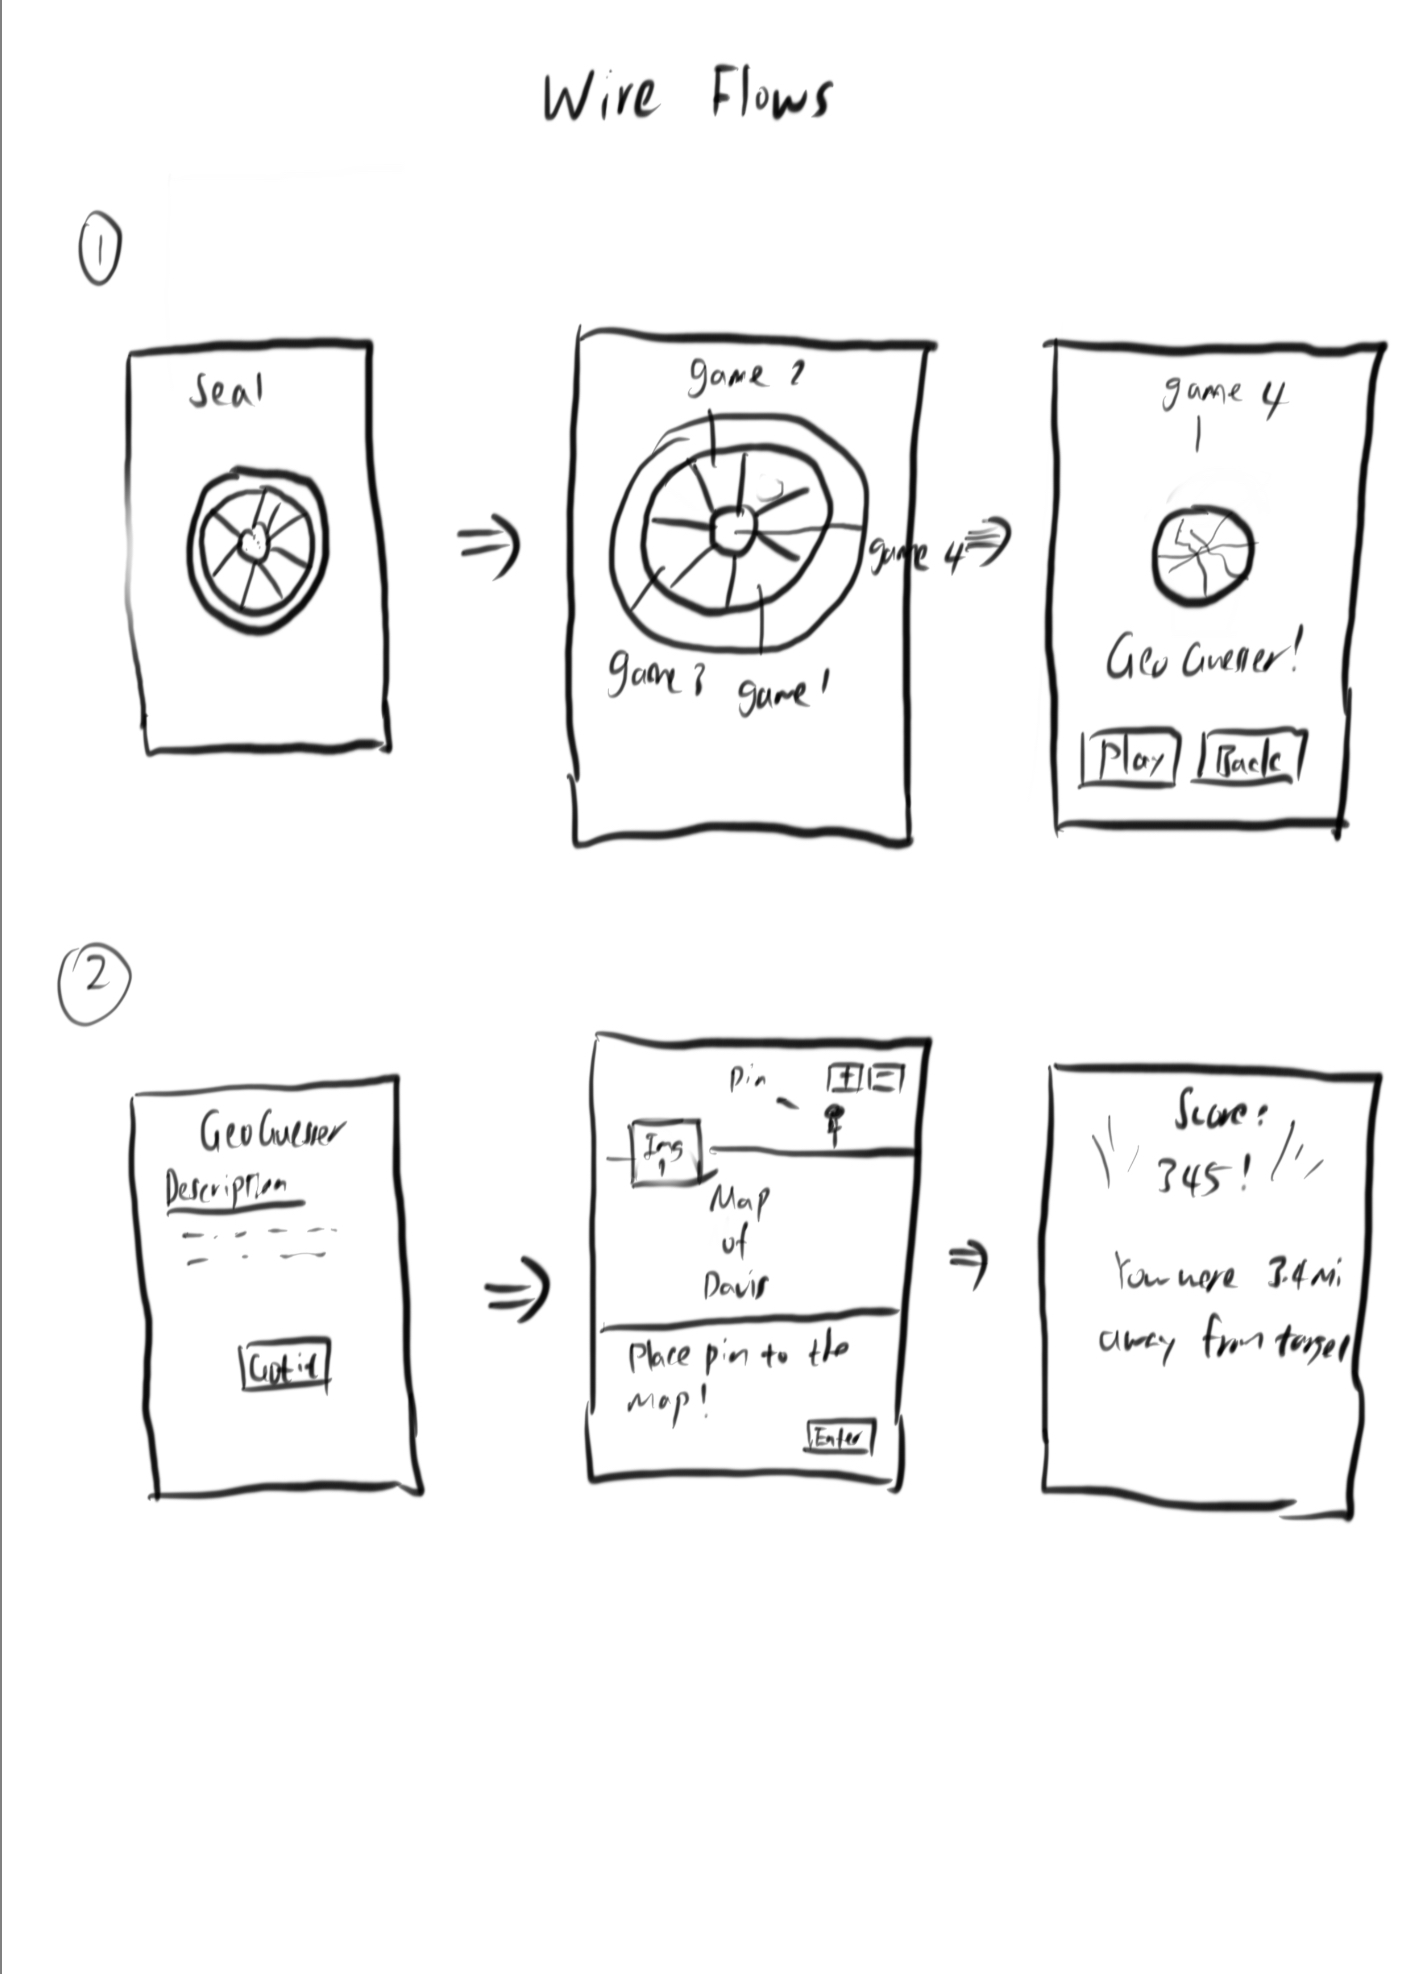 Wire Flows
1
Seal
game 2
game 4
game 3
game 1
game 4
Geo Guesser!
Play
Back
2
GeoGuesser
Description
Got it
Pin
+
Img
1
Map
of
Davis
Place pin to the
Map!
Enter
Score:
345!
You were 3.4 Mi
away from target